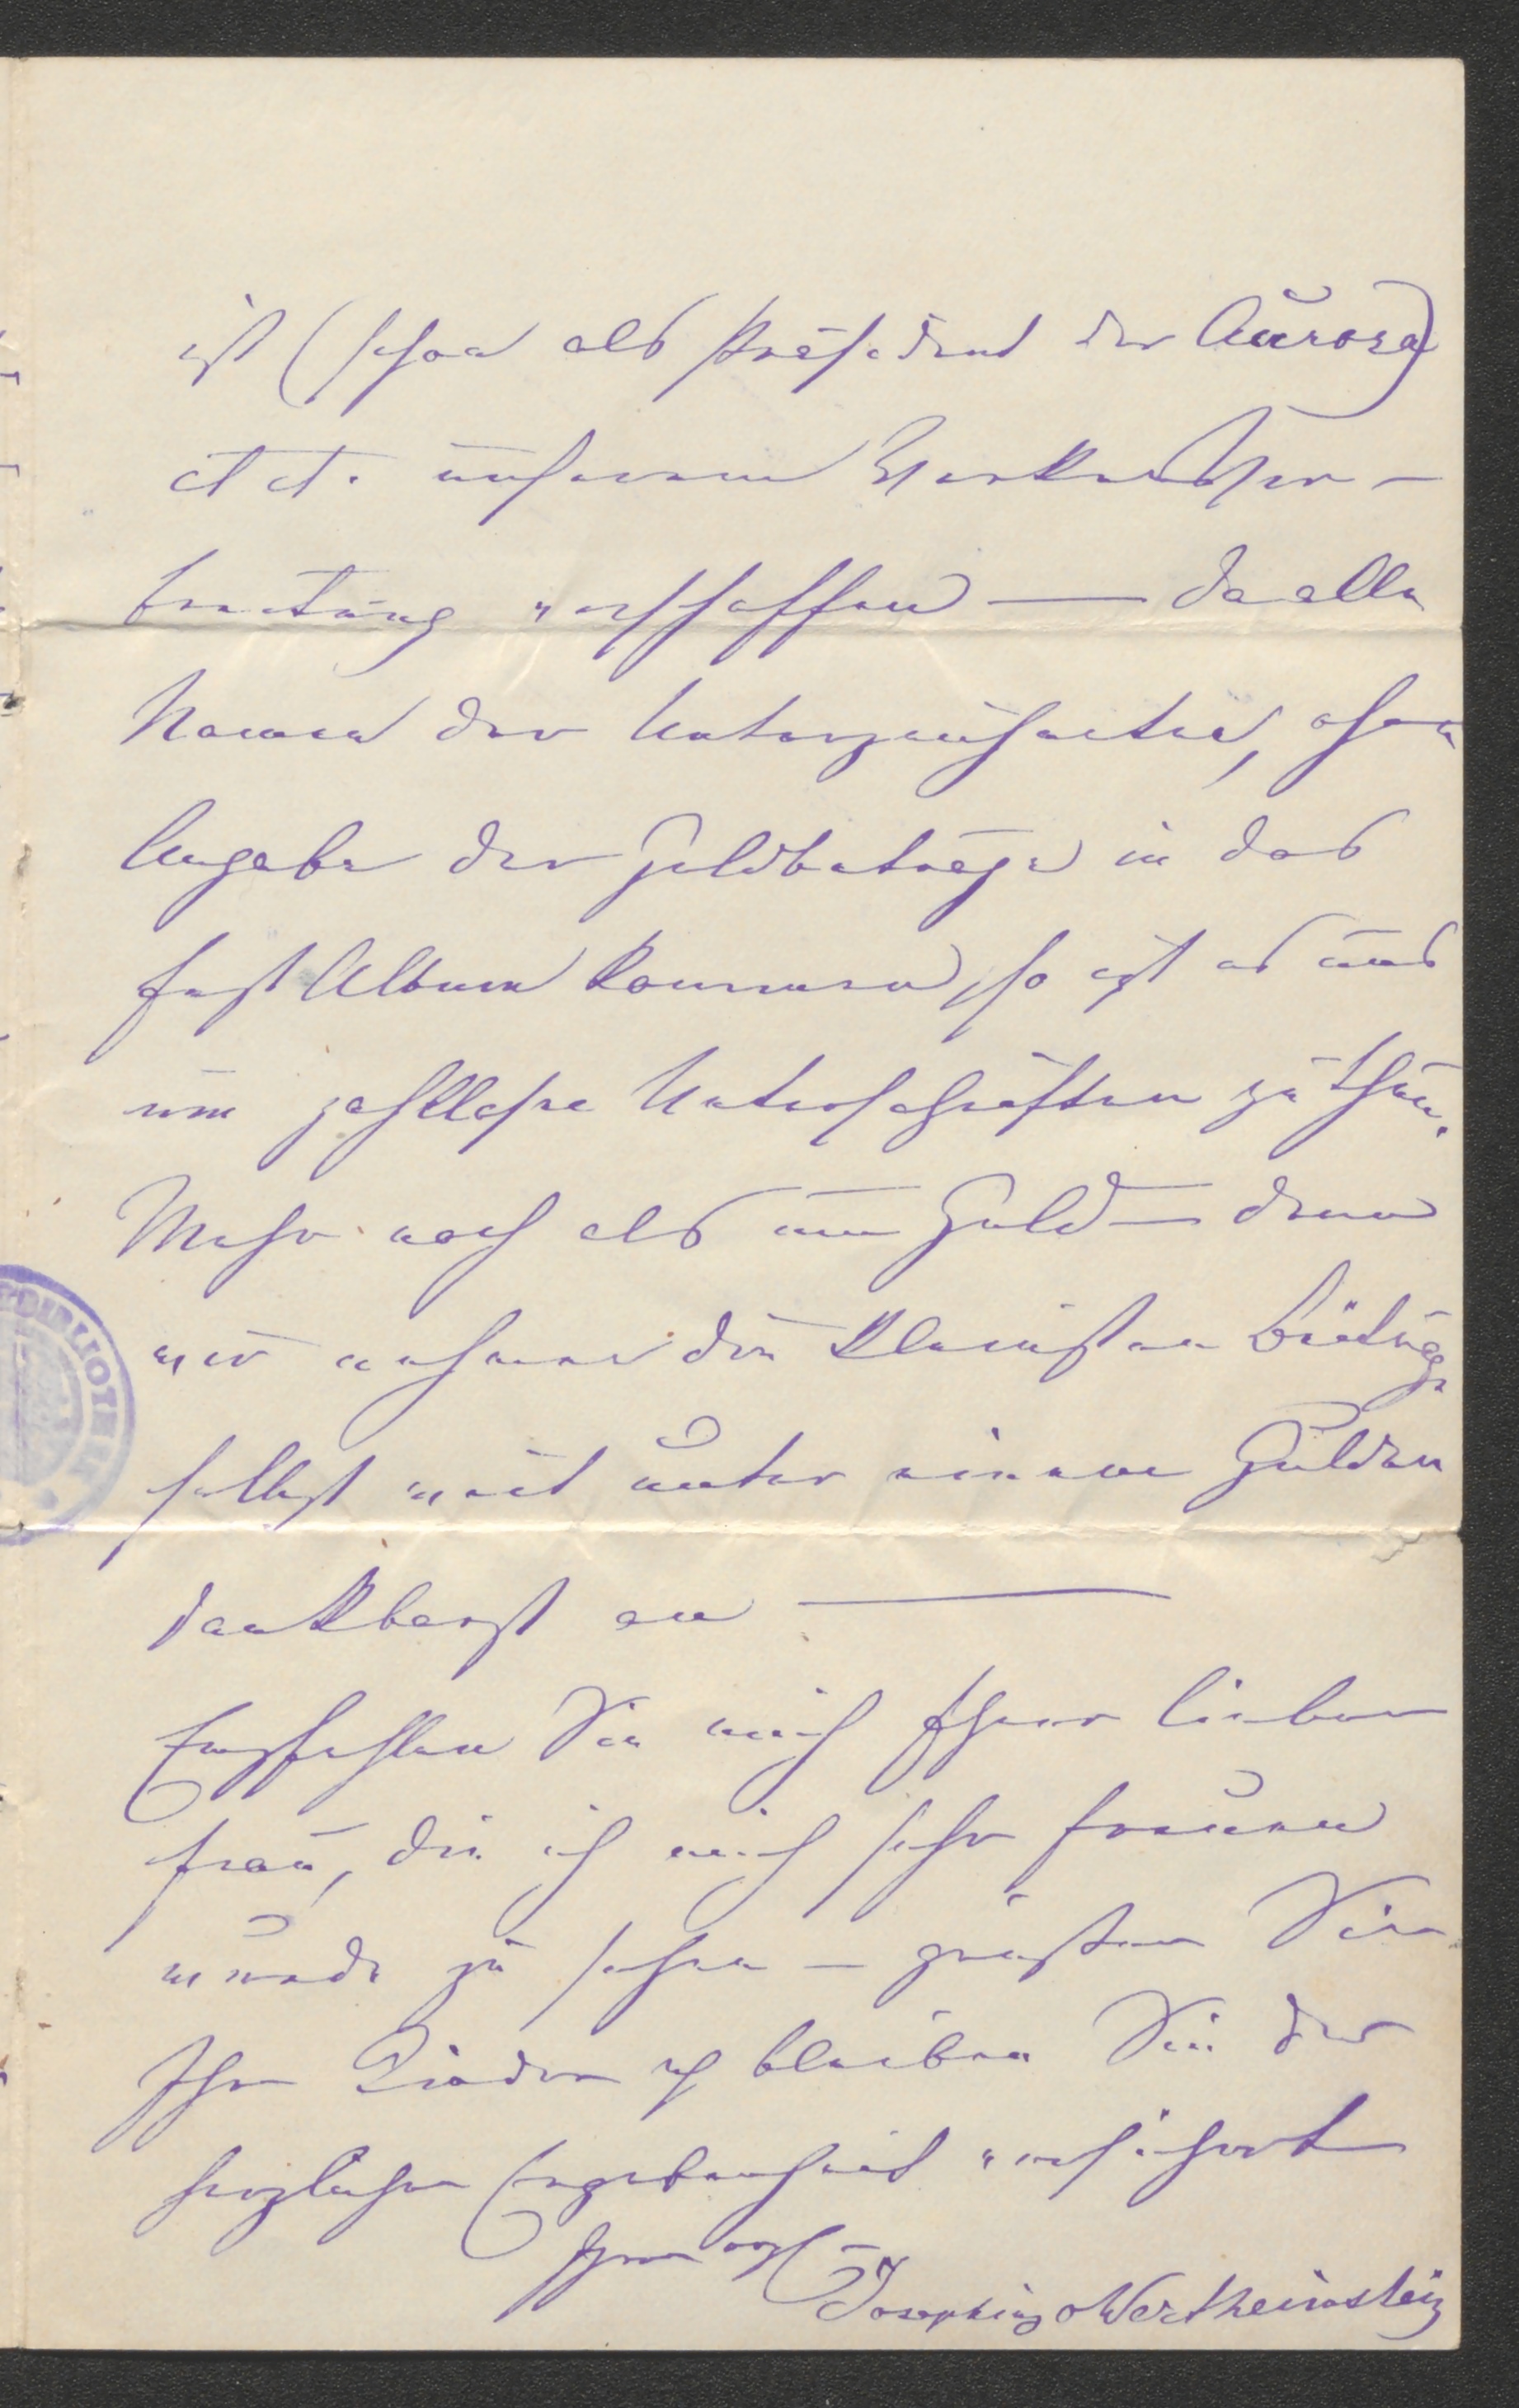 ist (schon als Präsident der Aurora)
etct. unserem Werke Ver-
breitung verschaffen — da alle
Namen der Unterzeichneten, ohne
Angabe der Geldbeträge in das
Fest Album kommen, so ist es uns
um zahllose Unterschriften zu thun.
Mehr noch als um Geld — denn
wir nehmen die kleinsten Beiträge
selbst weit unter einem Gulden
dankbarst an —
Empfehlen Sie mich Ihrer lieben
Frau, die ich mich sehr freuen
würde zu sehen — grüßen Sie
Ihre Kinder u bleiben Sie der
herzlichen Ergebenheit versichert
Ihrer
Josephine Wertheimstein
BIBLIOTHEK